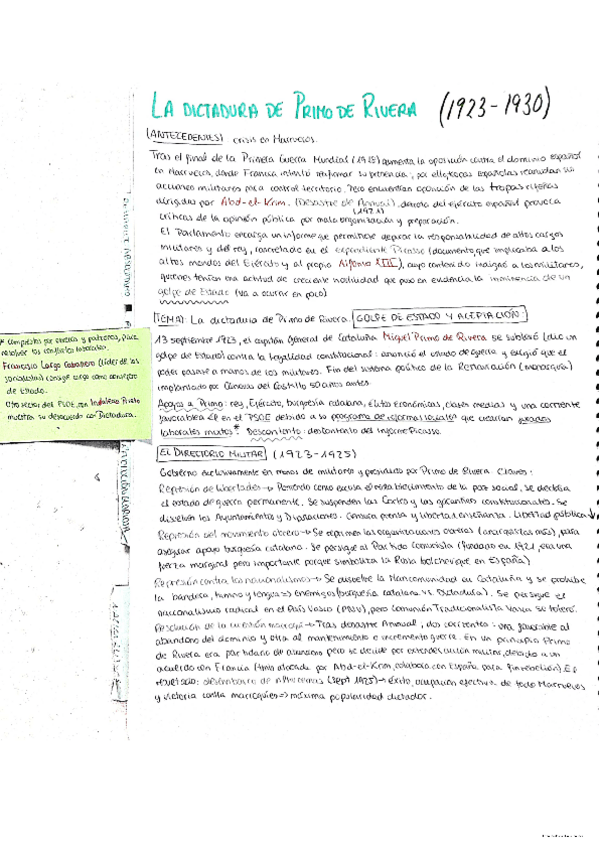 LA DICTADURA DE PRIMO DE RIVERA (1923-1930)
ANTECEDENTES crisis en Marruecos.
Tras el final de la Primera Guerra Mundial aumenta la oposición contra el dominio español
en Marruecos, donde Francia intentó reafirmar su presencia; por ello, tropas españolas reanudan sus
acciones militares para control territorio. Pero encuentran oposición de las tropas rifeñas
dirigida por Abd-el-Krim. (Desastre de Annual), derrota del ejército español provoca
(1921)
críticas de la opinión pública por mala organización y preparación.
El Parlamento encarga un informe que permitiese depurar la responsabilidad de altos cargos
militares y del rey, concretado en el expendiente Picasso (documento que implicaba a los
altos mandos del Ejército y al propio Alfonso XIII), cuyo contenido indignó a los militares,
quienes tenían una actitud de creciente hostilidad que puso en evidencia la inminencia de un
golpe de Estado (va a ocurrir en poco)
TEMA: La dictadura de Primo de Rivera. GOLPE DE ESTADO Y ACEPTACIÓN:
13 septiembre 1923, el capitán General de Cataluña Miguel Primo de Rivera se sublevó (dio un
golpe de Estado) contra la legalidad constitucional: anunció el estado de guerra y exigió que el
poder pasase a manos de los militares. Fin del sistema político de la Restauración (monarquía)
implantado por Cánovas del Castillo 50 años antes.
Apoyos a Primo: rey, Ejército, burguesía catalana, élites económicas, clases medias y una corriente
favorable a él en el PSOE debido a su programa de reformas sociales que crearían jurados
laborales mixtos* Descontento: descontento del Informe Picasso.
* Compuestos por obreros y patronos, para
resolver los conflictos laborales.
Francisco Largo Caballero (líder de los
socialistas) consigue cargo como consejero
de Estado.
Otro sector del PSOE, con Indalecio Prieto
muestra su desacuerdo con Dictadura.
EL DIRECTORIO MILITAR (1923-1925)
Gobierno exclusivamente en manos de militares y presidido por Primo de Rivera. Claves:
Represión de libertades → Poniendo como excusa el restablecimiento de la paz social, se declara
el estado de guerra permanente. Se suspenden las Cortes y las garantías constitucionales. Se
disuelven los Ayuntamientos y Diputaciones. Censura prensa y libertad enseñanza. Libertad pública ↓
Represión del movimiento obrero → Se reprimen las organizaciones obreras (anarquistas más), para
asegurar apoyo burguesía catalana. Se persigue al Partido Comunista (fundado en 1921, era una
fuerza marginal pero importante porque simbolizaba la Rusia bolchevique en España)
Represión contra los nacionalismos → Se disuelve la Mancomunidad en Cataluña y se prohíbe
la bandera, himno y lengua => enemigos (burguesía catalana vs. Dictadura). Se persigue el
nacionalismo radical en el País Vasco (PNV), pero Comunión Tradicionalista Vasca se toleró.
Resolución de la cuestión marroquí → Tras desastre Annual, dos corrientes: una favorable al
abandono del dominio y otra al mantenimiento e incremento guerra. En un principio Primo
de Rivera era partidario de abandono pero se decide por extender acción militar, debido a un
acuerdo con Francia (atacada por Abd-el-Krim, colabora con España para intervención). El
resultado: desembarco de Alhucemas (sept 1925) → Éxito, ocupación efectiva de todo Marruecos
y victoria contra marroquíes => máxima popularidad dictador.